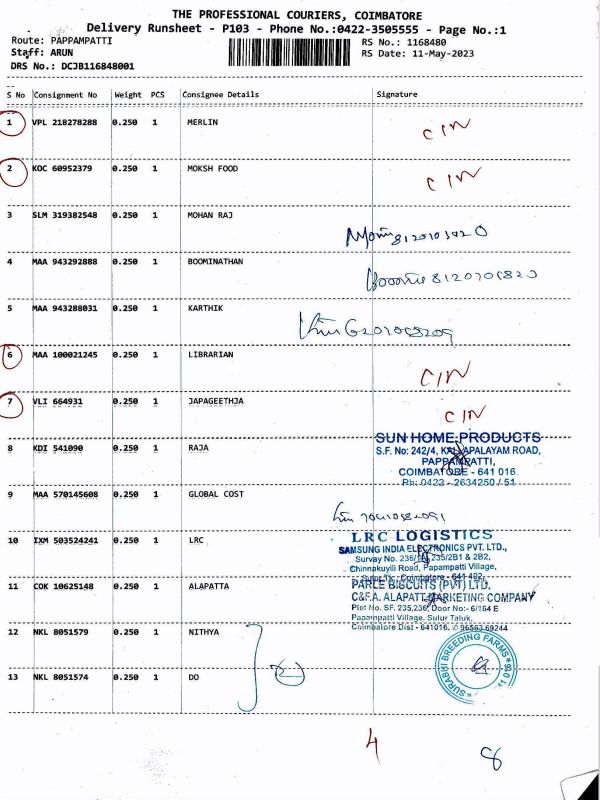 THE PROFESSIONAL COURIERS, COIMBATORE
Delivery Runsheet - P103 - Phone No.:0422-3505555 - Page No.:1
Route: PAPPAMPATTI
RS No.: 1168480
Staff: ARUN
RS Date: 11-May-2023
DRS No.: DCJB116848001
S No Consignment No Weight PCS Consignee Details Signature
1 VPL 218278288 0.250 1 MERLIN CIN
2 KOC 60952379 0.250 1 MOKSH FOOD CIN
3 SLM 319382548 0.250 1 MOHAN RAJ
4 MAA 943292888 0.250 1 BOOMINATHAN
5 MAA 943288031 0.250 1 KARTHIK
6 MAA 100021245 0.250 1 LIBRARIAN CIN
7 VLI 664931 0.250 1 JAPAGEETHJA CIN
8 KDI 541090 0.250 1 RAJA
SUN HOME PRODUCTS
S.F. No: 242/4, KALLAPALAYAM ROAD,
PAPPAMPATTI,
COIMBATORE - 641 016.
Ph: 0422 - 2634250 / 51
9 MAA 570145608 0.250 1 GLOBAL COST
10 IXM 503524241 0.250 1 LRC
LRC LOGISTICS
SAMSUNG INDIA ELECTRONICS PVT. LTD.,
Survey No. 236/ 235/2B1 & 2B2,
Chinnakuyili Road, Papampatti Village,
Sulur Tk., Coimbatore - 641 402.
11 COK 10625148 0.250 1 ALAPATTA
PARLE BISCUITS (PVT) LTD.
C&F.A. ALAPATT MARKETING COMPANY
Plot No. SF. 235,236, Door No:- 6/164 E
Papampatti Village, Sulur Taluk,
Coimbatore Dist - 641016. 96563 69244
12 NKL 8051579 0.250 1 NITHYA
SURABHI BREEDING FARMS
13 NKL 8051574 0.250 1 DO
4
8